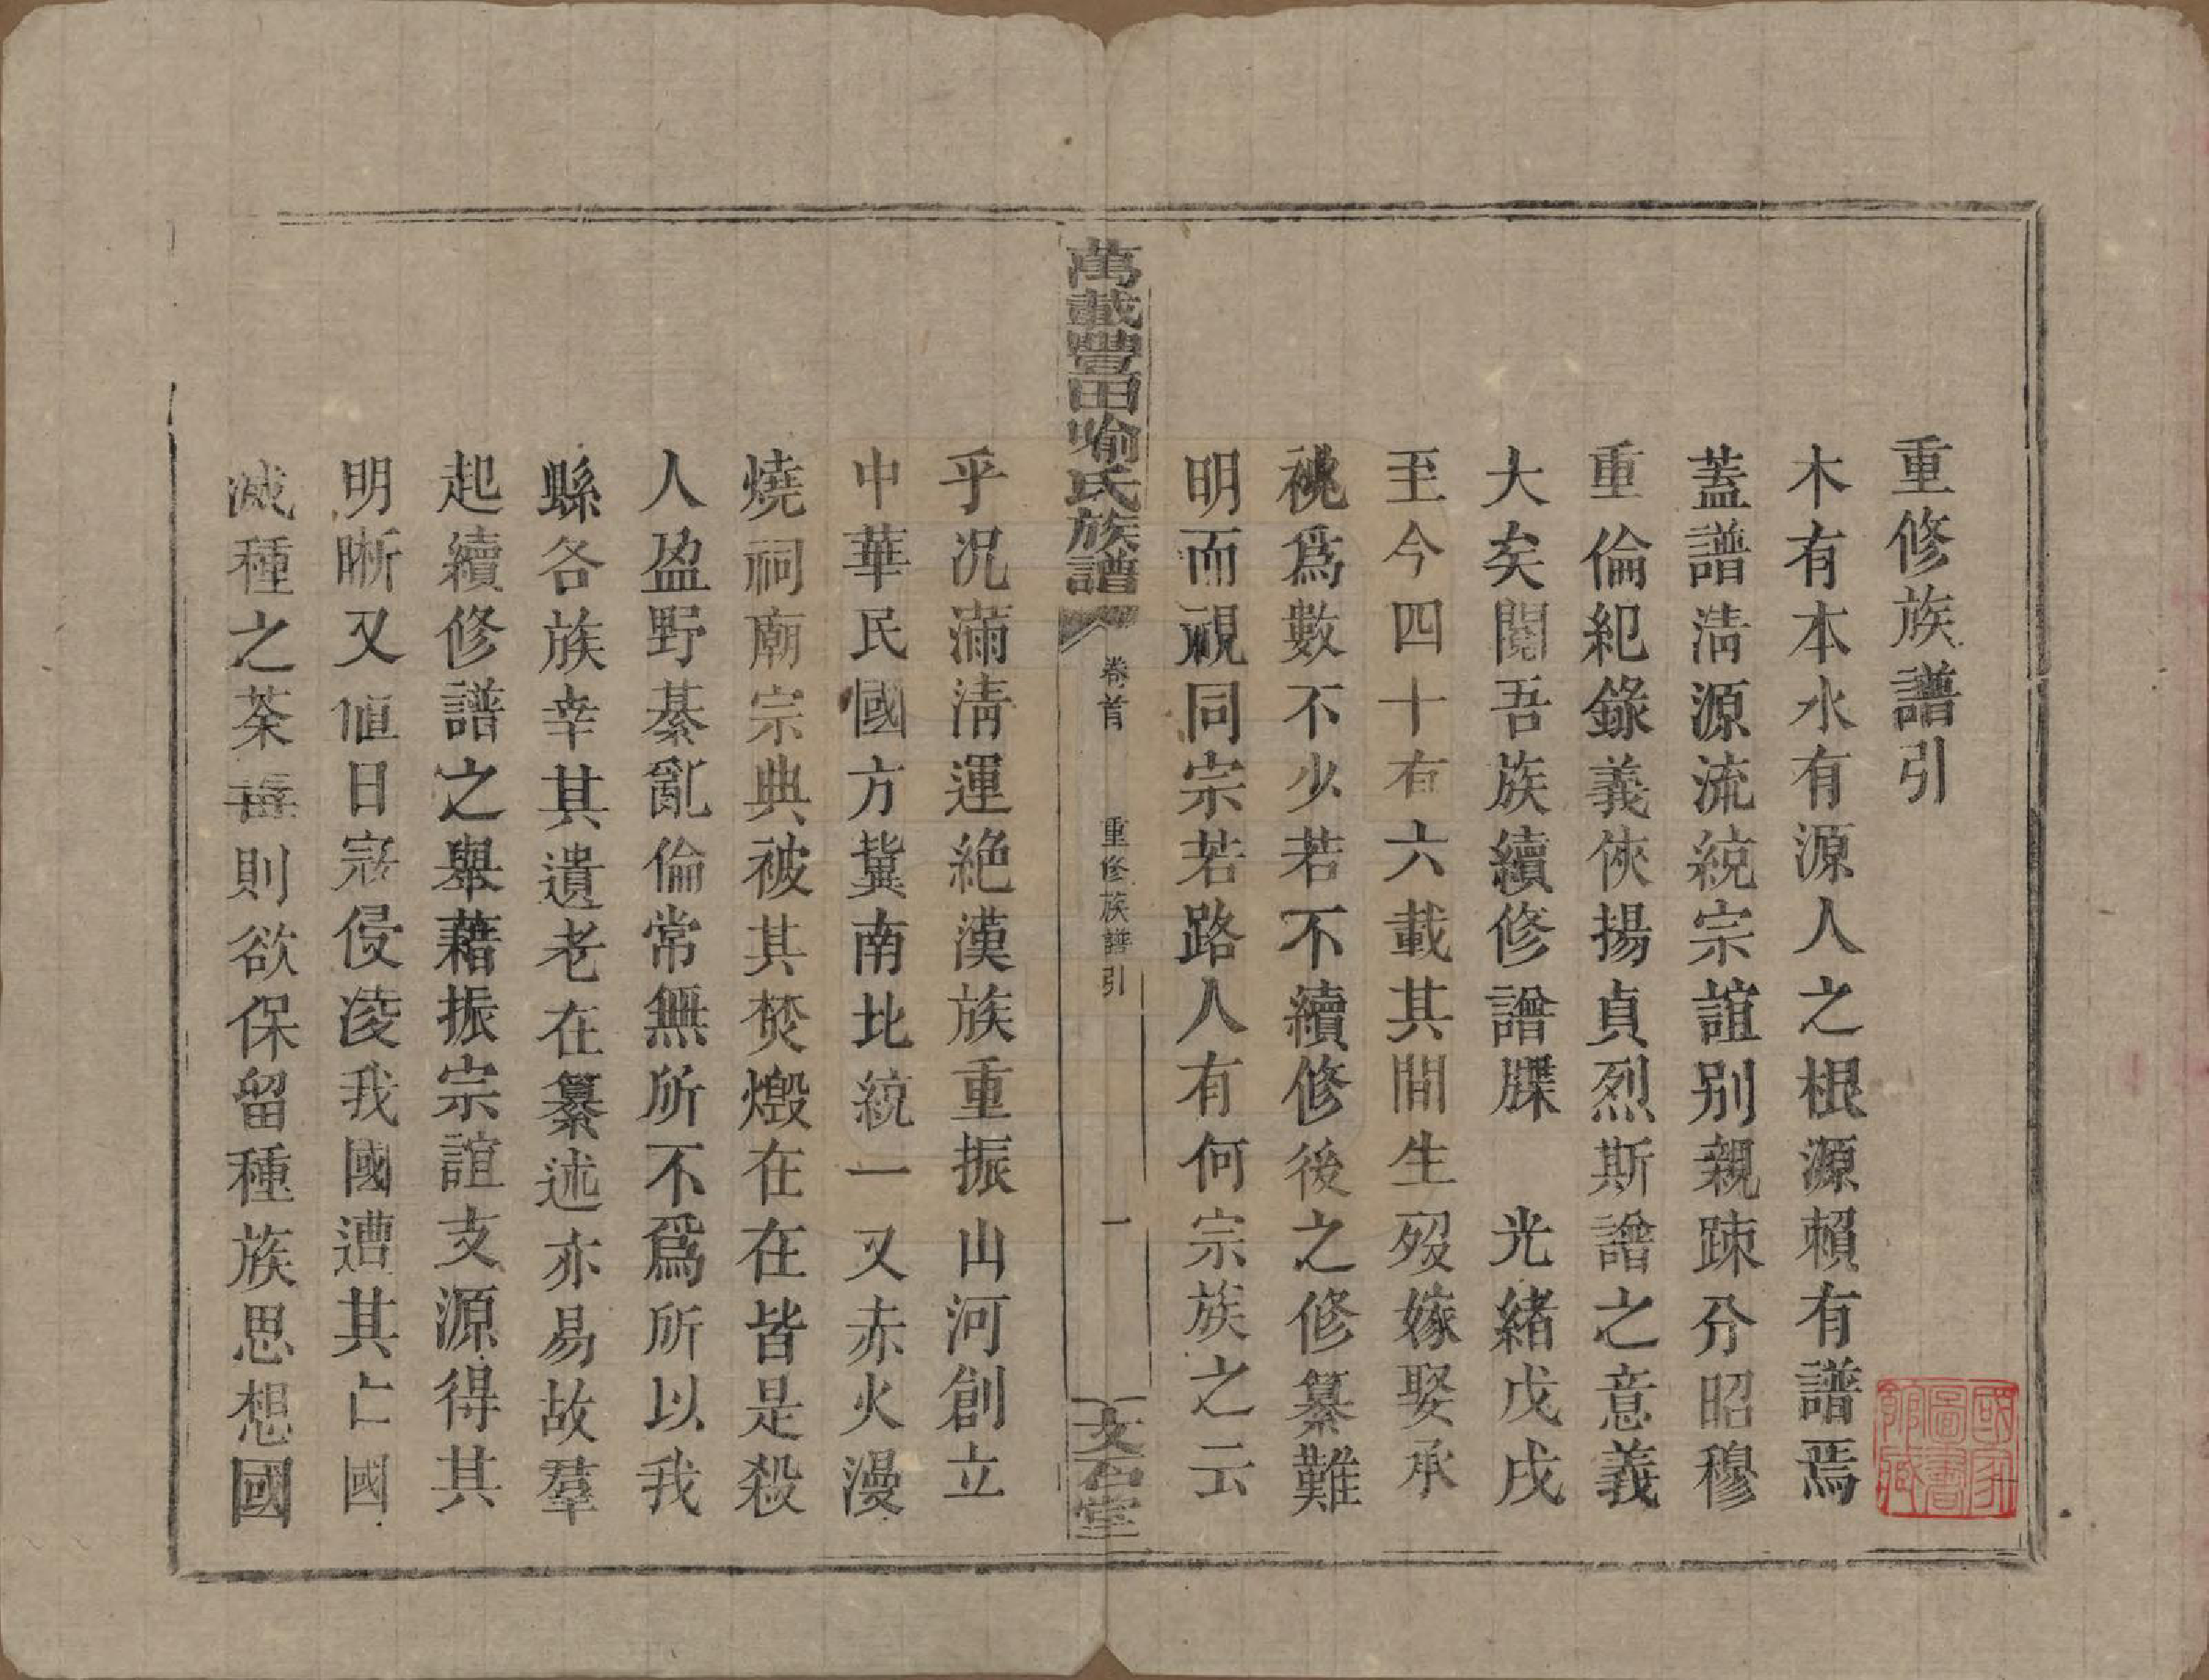 重修族譜引
木有本水有源人之根源賴有譜焉
蓋譜淸源流統宗誼別親踈分昭穆
重倫紀錄義俠揚貞烈斯譜之意義
大矣閱吾族續修譜牒　光緖戊戌
至今四十有六載其間生歿嫁娶承
祧爲數不少若不續修後之修纂難
明而視同宗若路人有何宗族之云
萬載豐田喻氏族譜
卷首
重修族譜引
一
文石堂
乎況滿淸運絶漢族重振山河創立
中華民國方冀南北統一又赤火漫
燒祠廟宗典被其焚燬在在皆是殺
人盈野綦亂倫常無所不爲所以我
縣各族幸其遺老在纂述亦易故羣
起續修譜之舉藉振宗誼支源得其
明晰又値日寇侵淩我國遭其亡國
滅種之荼毒則欲保留種族思想國
國家圖書館藏